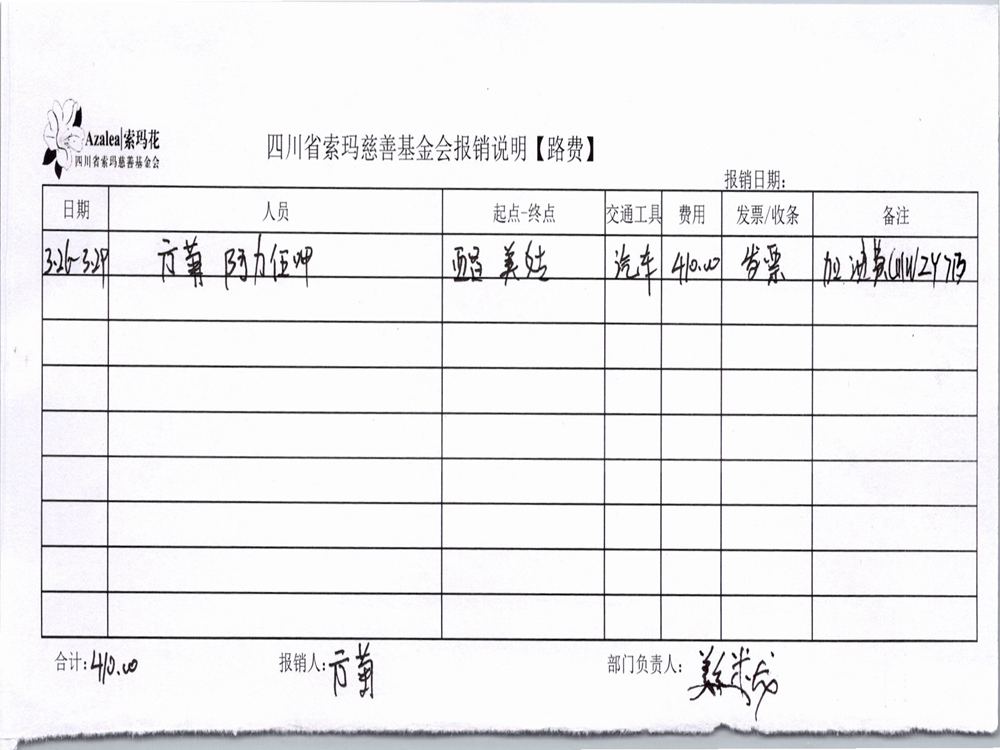 Azalea|索玛花
四川省索玛慈善基金会
四川省索玛慈善基金会报销说明【路费】
报销日期：
日期 人员 起点-终点 交通工具 费用 发票/收条 备注
3.26-3.29 方菊 阿力伍呷 西昌 美姑 汽车 410.00 发票 加油费
合计：410.00 报销人：方菊 部门负责人：